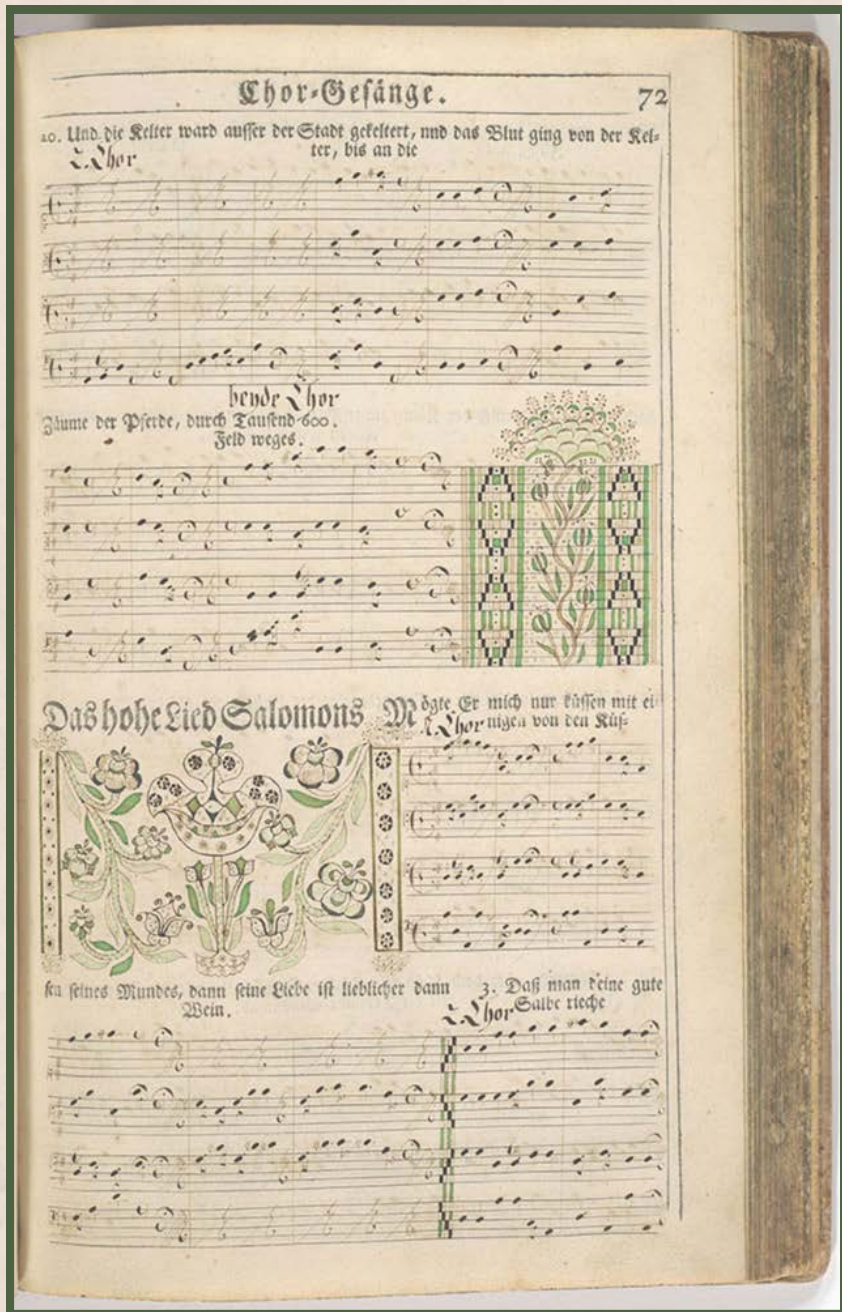 Chor-Gesänge. 72
20. Und die Kelter ward ausser der Stadt gekeltert, und das Blut ging von der Kel-
ter, bis an die
2. Chor
beyde Chor
Zäume der Pferde, durch Tausend 600.
Feld weges.
Das hohe Lied Salomons
Mögte Er mich nur küssen mit ei
Chor nigen von den Küs-
sen seines Mundes, dann seine Liebe ist lieblicher dann
Wein.
3. Daß man deine gute
2. Chor Salbe rieche